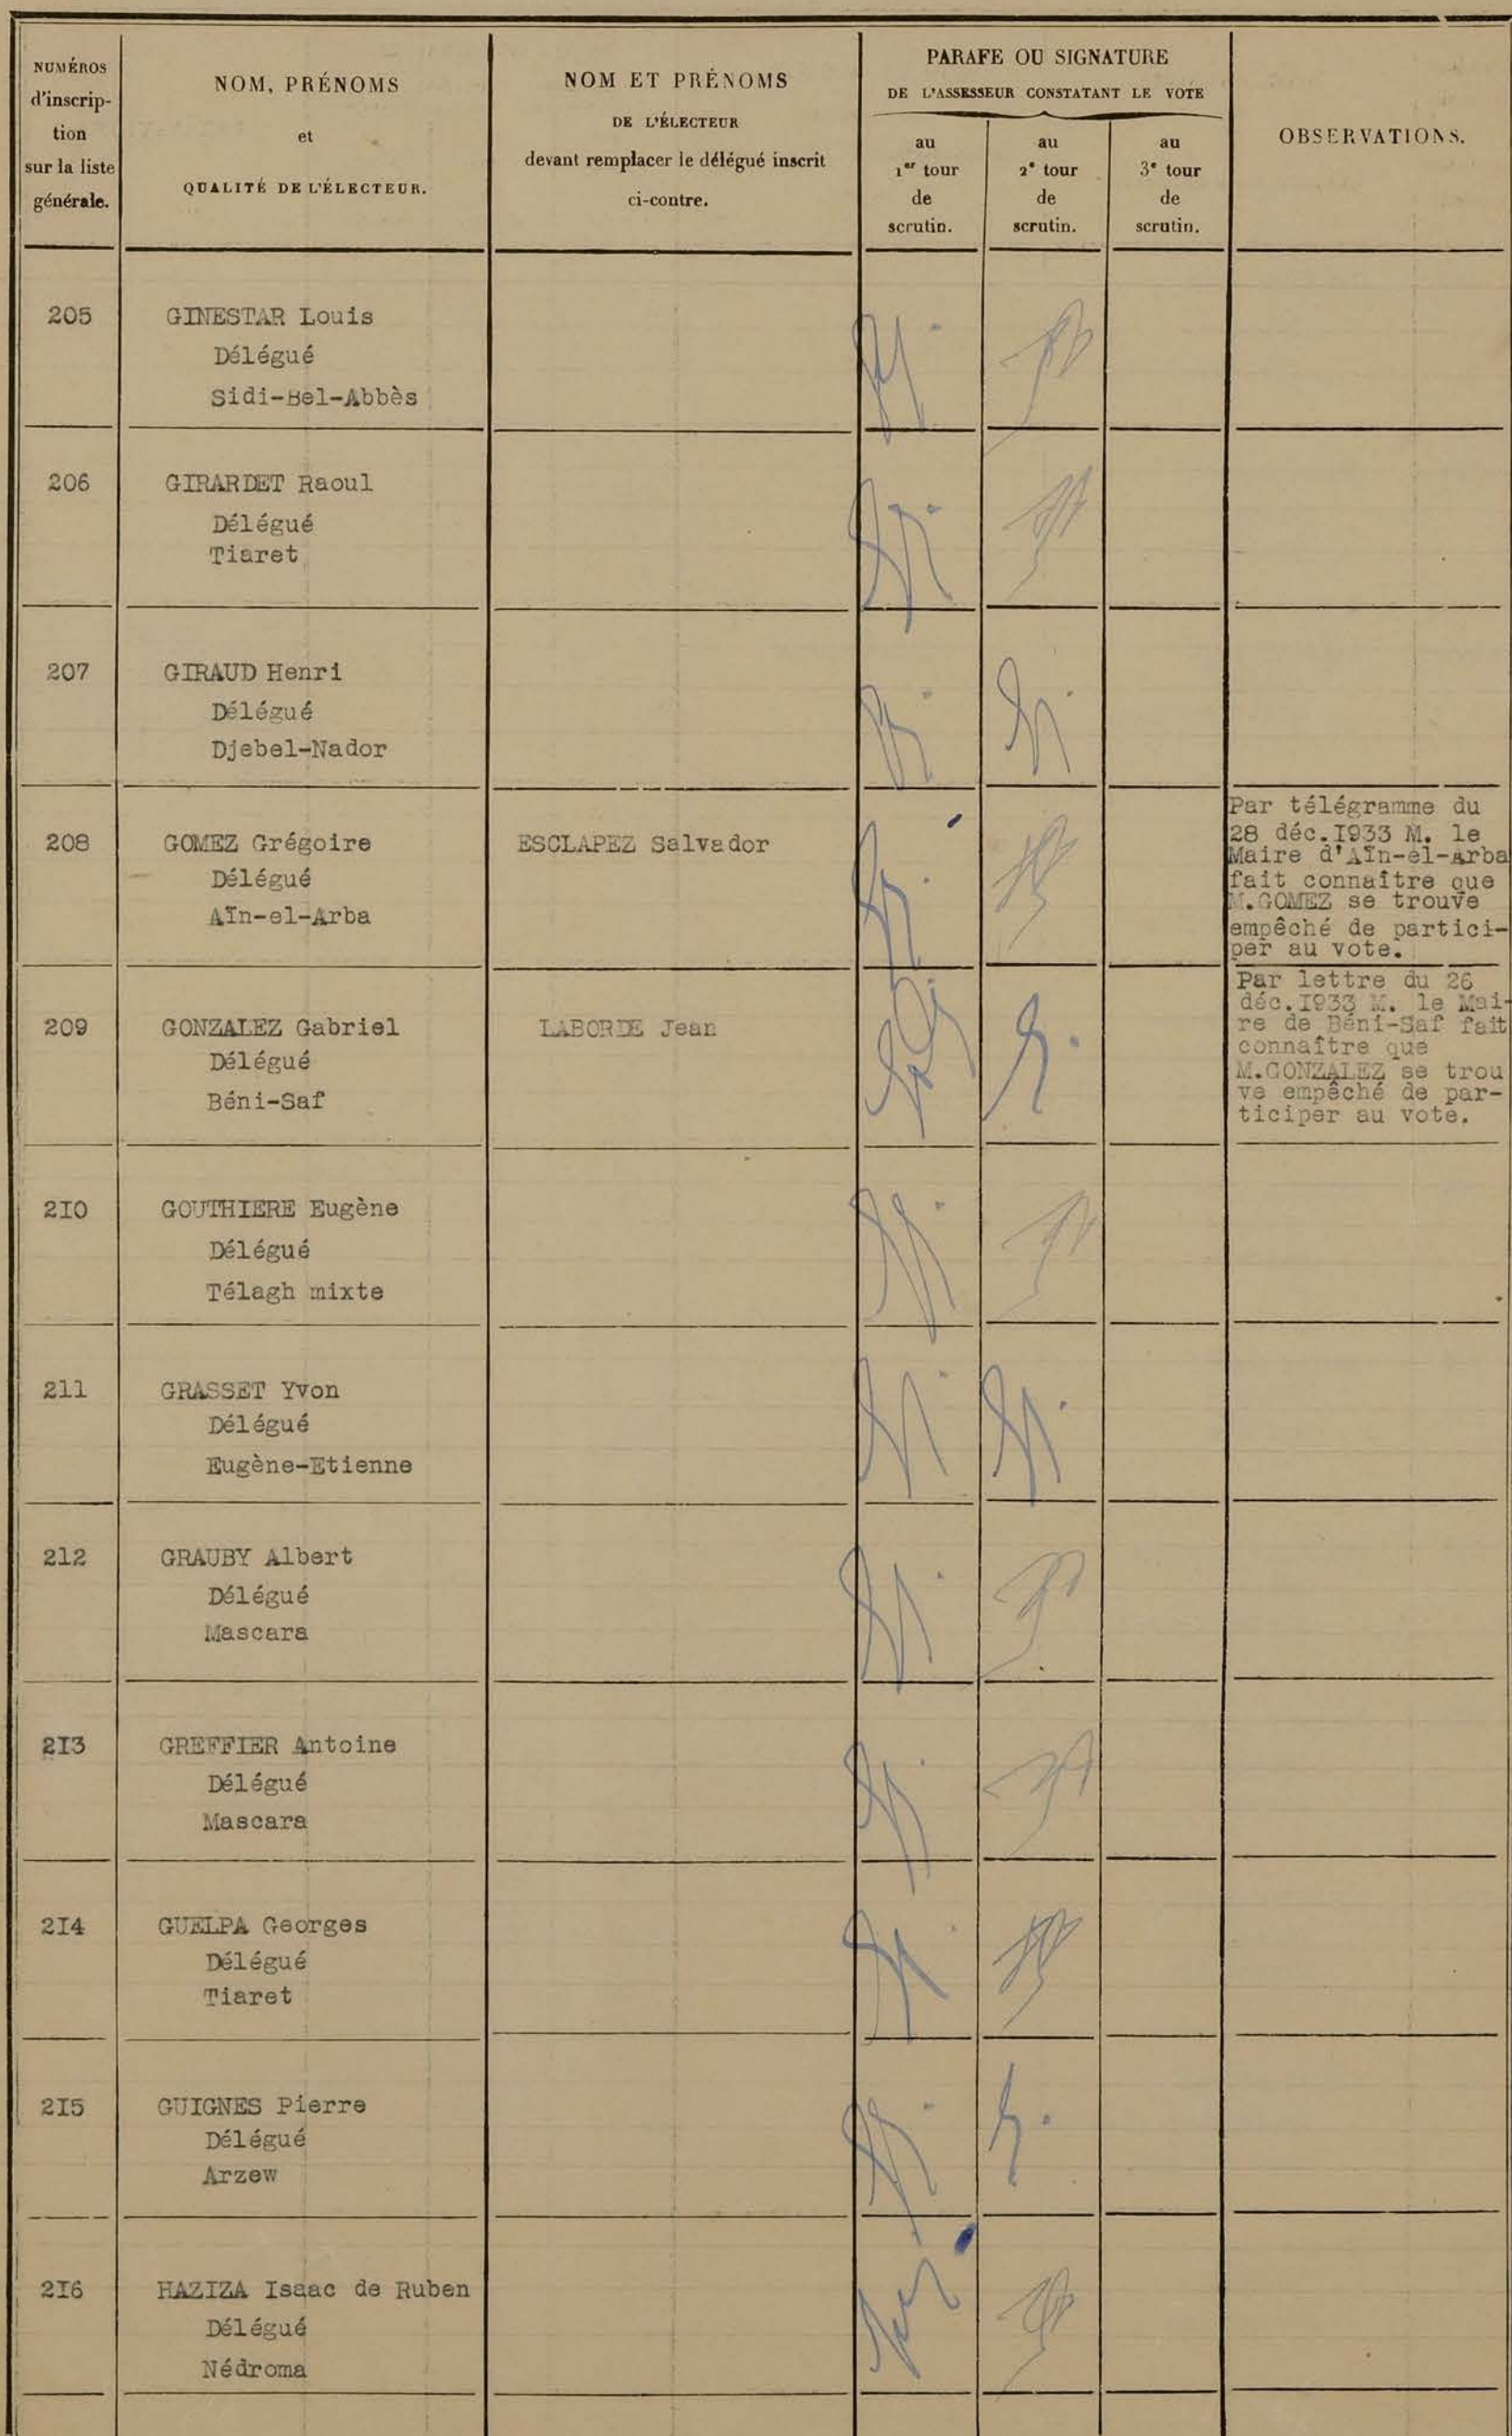 NUMÉROS
d'inscrip-
tion
sur la liste
générale.
NOM, PRÉNOMS
et
QUALITÉ DE L'ÉLECTEUR.
NOM ET PRÉNOMS
DE L'ÉLECTEUR
devant remplacer le délégué inscrit
ci-contre.
PARAFE OU SIGNATURE
DE L'ASSESSEUR CONSTATANT LE VOTE
au
1er tour
de
scrutin.
au
2e tour
de
scrutin.
au
3e tour
de
scrutin.
OBSERVATIONS.
205
GINESTAR Louis
Délégué
Sidi-Bel-Abbès
206
GIRARDET Raoul
Délégué
Tiaret
207
GIRAUD Henri
Délégué
Djebel-Nador
208
GOMEZ Grégoire
Délégué
AÏn-el-Arba
ESCLAPEZ Salvador
Par télégramme du
28 déc.I933 M. le
Maire d'AÏn-el-Arba
fait connaître que
M.GOMEZ se trouve
empêché de partici-
per au vote.
209
GONZALEZ Gabriel
Délégué
Béni-Saf
LABORDE Jean
Par lettre du 26
déc.I933 M. le Mai-
re de Béni-Saf fait
connaître que
M.GONZALEZ se trou
ve empêché de par-
ticiper au vote.
2I0
GOUTHIERE Eugène
Délégué
Télagh mixte
211
GRASSET Yvon
Délégué
Eugène-Etienne
212
GRAUBY Albert
Délégué
Mascara
2I3
GREFFIER Antoine
Délégué
Mascara
2I4
GUELPA Georges
Délégué
Tiaret
2I5
GUIGNES Pierre
Délégué
Arzew
2I6
HAZIZA Isaac de Ruben
Délégué
Nédroma